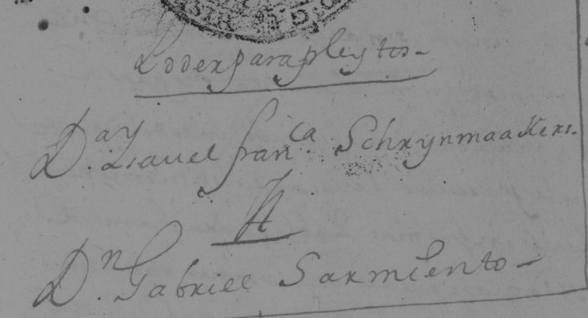 Poder para pleytos-
D.ª Isauel fran.ca SchrynmaaKers.
A
D.n Gabriel Sarmiento-